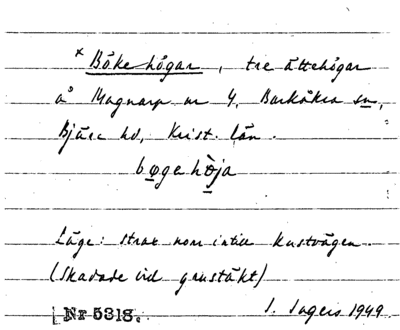 x Båkehögar, tre ättehögar
å Magnarp nr 4, Barkåkra sn,
Bjäre hd, Krist. län.
bǫgehǫ̀ja
Läge: strax norr intill kustvägen.
(Skadade vid grustäkt)
Nr 5318. I. Ingers 1949.